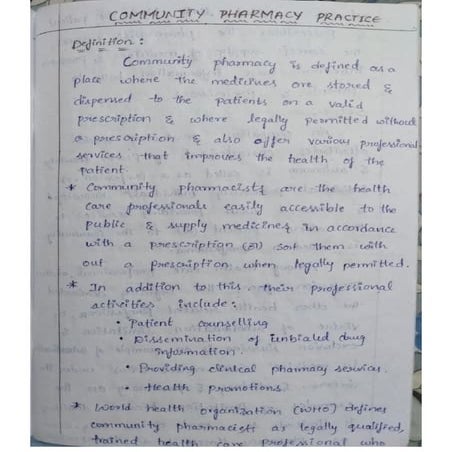 COMMUNITY PHARMACY PRACTICE
Definition :
Community pharmacy is defined as a
place where the medicines are stored &
dispensed to the patients on a valid
prescription & where legally permitted without
a prescription & also offer various professional
services that improves the health of the
patient.
* Community pharmacists are the health
care professionals easily accessible to the
public & supply medicines in accordance
with a prescription (or) them with
out a prescription when legally permitted.
* In addition to this their professional
activities include :
• Patient counselling
• Dissemination of unbiased drug
information.
• Providing clinical pharmacy services.
• Health promotions
* World health organization (WHO) defines
community pharmacist as legally qualified,
trained health care professional who